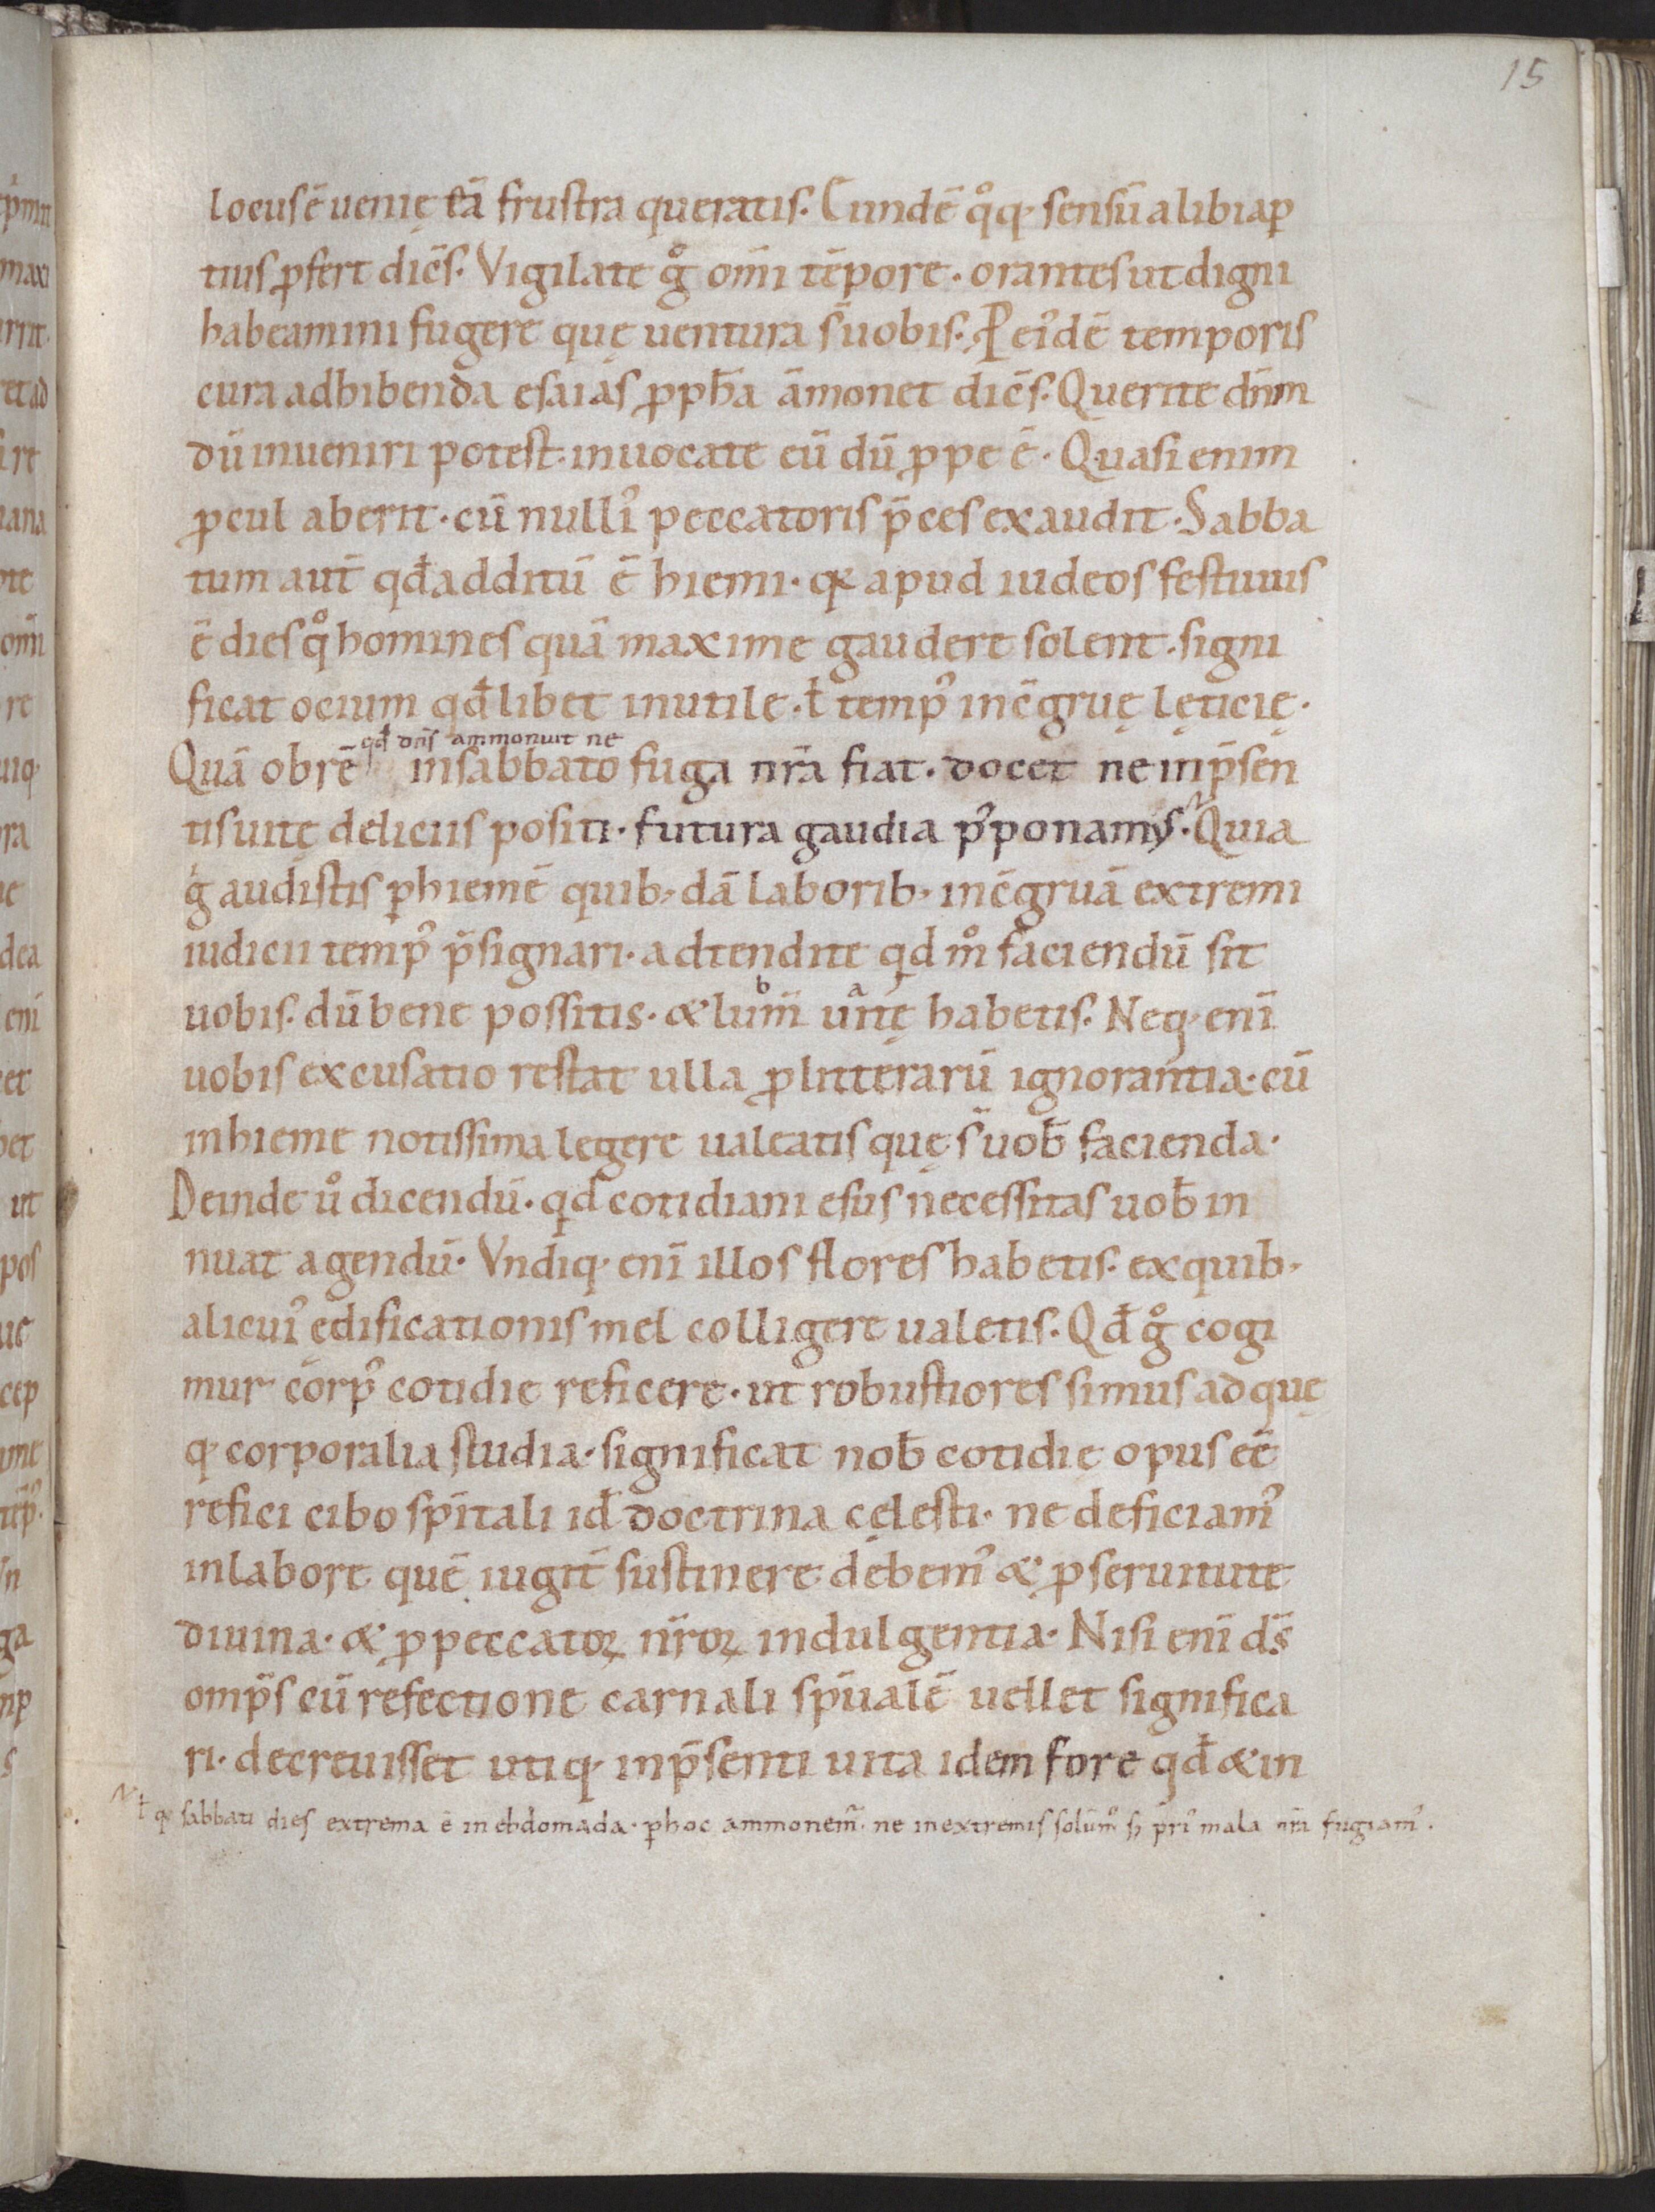 15
locus ē uenię eā frustra queratis. Cundē qͦq; sensū alibi ap
tius ꝓfert dicēs. Vigilate gͦ om̄i tēpore. orantes ut digni
habeamini fugere quę uentura s̄ uobis. P eiꝰdē temporis
cura adhibenda esaias ꝓph̄a āmonet dicēs. Querite dn̄m
dū inueniri potest. inuocate eū dū ꝓpe ē. Quasi enim
ꝓcul aberit. cū nulliꝰ peccatoris p̄ces exaudit. Sabba
tum aut̄ qđ additū ē hiemi. q; apud iudeos festiuus
ē dies qͦ homines quā maxime gaudere solent. signi
ficat ocium qđlibet inutile. ł tempꝰ incōgruę lęticię.
qđ dn̄s ammonuit ne
Quā obrē in sabbato fuga nr̄a fiat. docet ne in p̄sen
tis uitę deliciis positi. futura gaudia pꝰponamus. Quia
gͥ audistis ꝑ hiemē quib; dā laborib; incōgruā extremi
iudicii tempꝰ p̄signari. adtendite qd mͦ faciendū sit
uobis. dū bene possitis. & lum̄ uitę habetis. Neq; enī
uobis excusatio restat ulla ꝓ litterarū ignorantia. cū
in hieme notissima legere ualeatis quę s̄ uob̄ facienda.
Deinde uͦ dicendū. qd cotidiani esus necessitas uob̄ in
nuat agendū. Vndiq; enī illos flores habetis. ex quib;
alicuiꝰ ędificationis mel colligere ualetis. Qđ gͦ cogi
mur corpꝰ cotidie reficere. ut robustiores simus ad quę
q; corporalia studia. significat nob̄ cotidie opus eē
refici cibo sp̄itali id̄ doctrina cęlesti. ne deficiamꝰ
in labore quē iugit̄ sustinere debemꝰ & ꝓ seruitute
diuina. & ꝓ peccatoꝝ nr̄oꝝ indulgentia. Nisi enī ds̄
omp̄s cū refectione carnali sp̄ualē uellet significa
ri. decreuisset utiq; in p̄senti uita idem fore qđ & in
ł q; sabbati dies extrema ē in ebdomada. ꝑ hoc ammonem̄. ne in extremis solūmͦ s; priꝰ mala nr̄a fugiamꝰ.